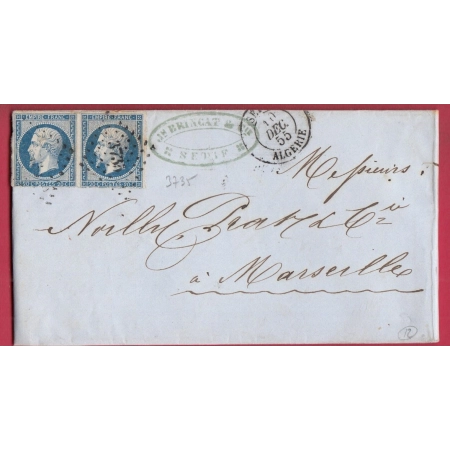 EMPIRE FRANC EMPIRE FRANC
20 C. POSTES 20 C. 20 C. POSTES 20 C.
Jh BRINCAT & Cie
SETIF
10
DEC.
55
ALGERIE
3735
Messieurs
Noilly Prat & Cie
à Marseille